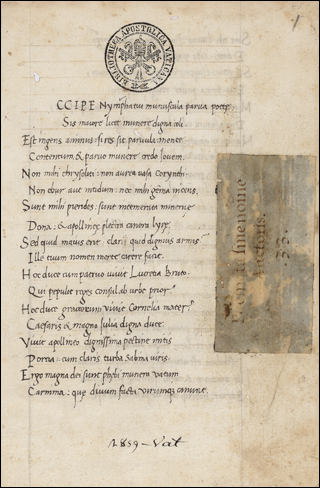 BIBLIOTHECA APOSTOLICA VATICANA
1
CCIPE Nymphatu munuscula parua poetę
Sis maiore licet munere digna coli
Est ingens animus: si res sit paruula mentē
Contentum & paruo munere credo Iouem.
Non mihi chrysoliti: non aurea uasa Corynthi
Non ebur aut indum: nec mihi gēma nitens.
Sunt mihi pierides: sunt mēritia minerue
Dona: & apollineę plectra canora lyrę.
Sed quid maius erit claris quod dignius armis
Ille tuum nomen uiuere
Hoc duce cum patrio uiuit Lucretia Bruto.
Qui pepulit reges consul ab urbe prior
Hoc duce gracorum uiuit Cornelia mater
Caesaris & magno Iulia digna duce
Viuit apollineo dignissima pectine
Portia: cum claris turba Sabina uiris.
Ergo magna dei sunt munera uatum
Carmina: quę diuum facta uirumque canunt.
auctoris.
33.
1859-Vat